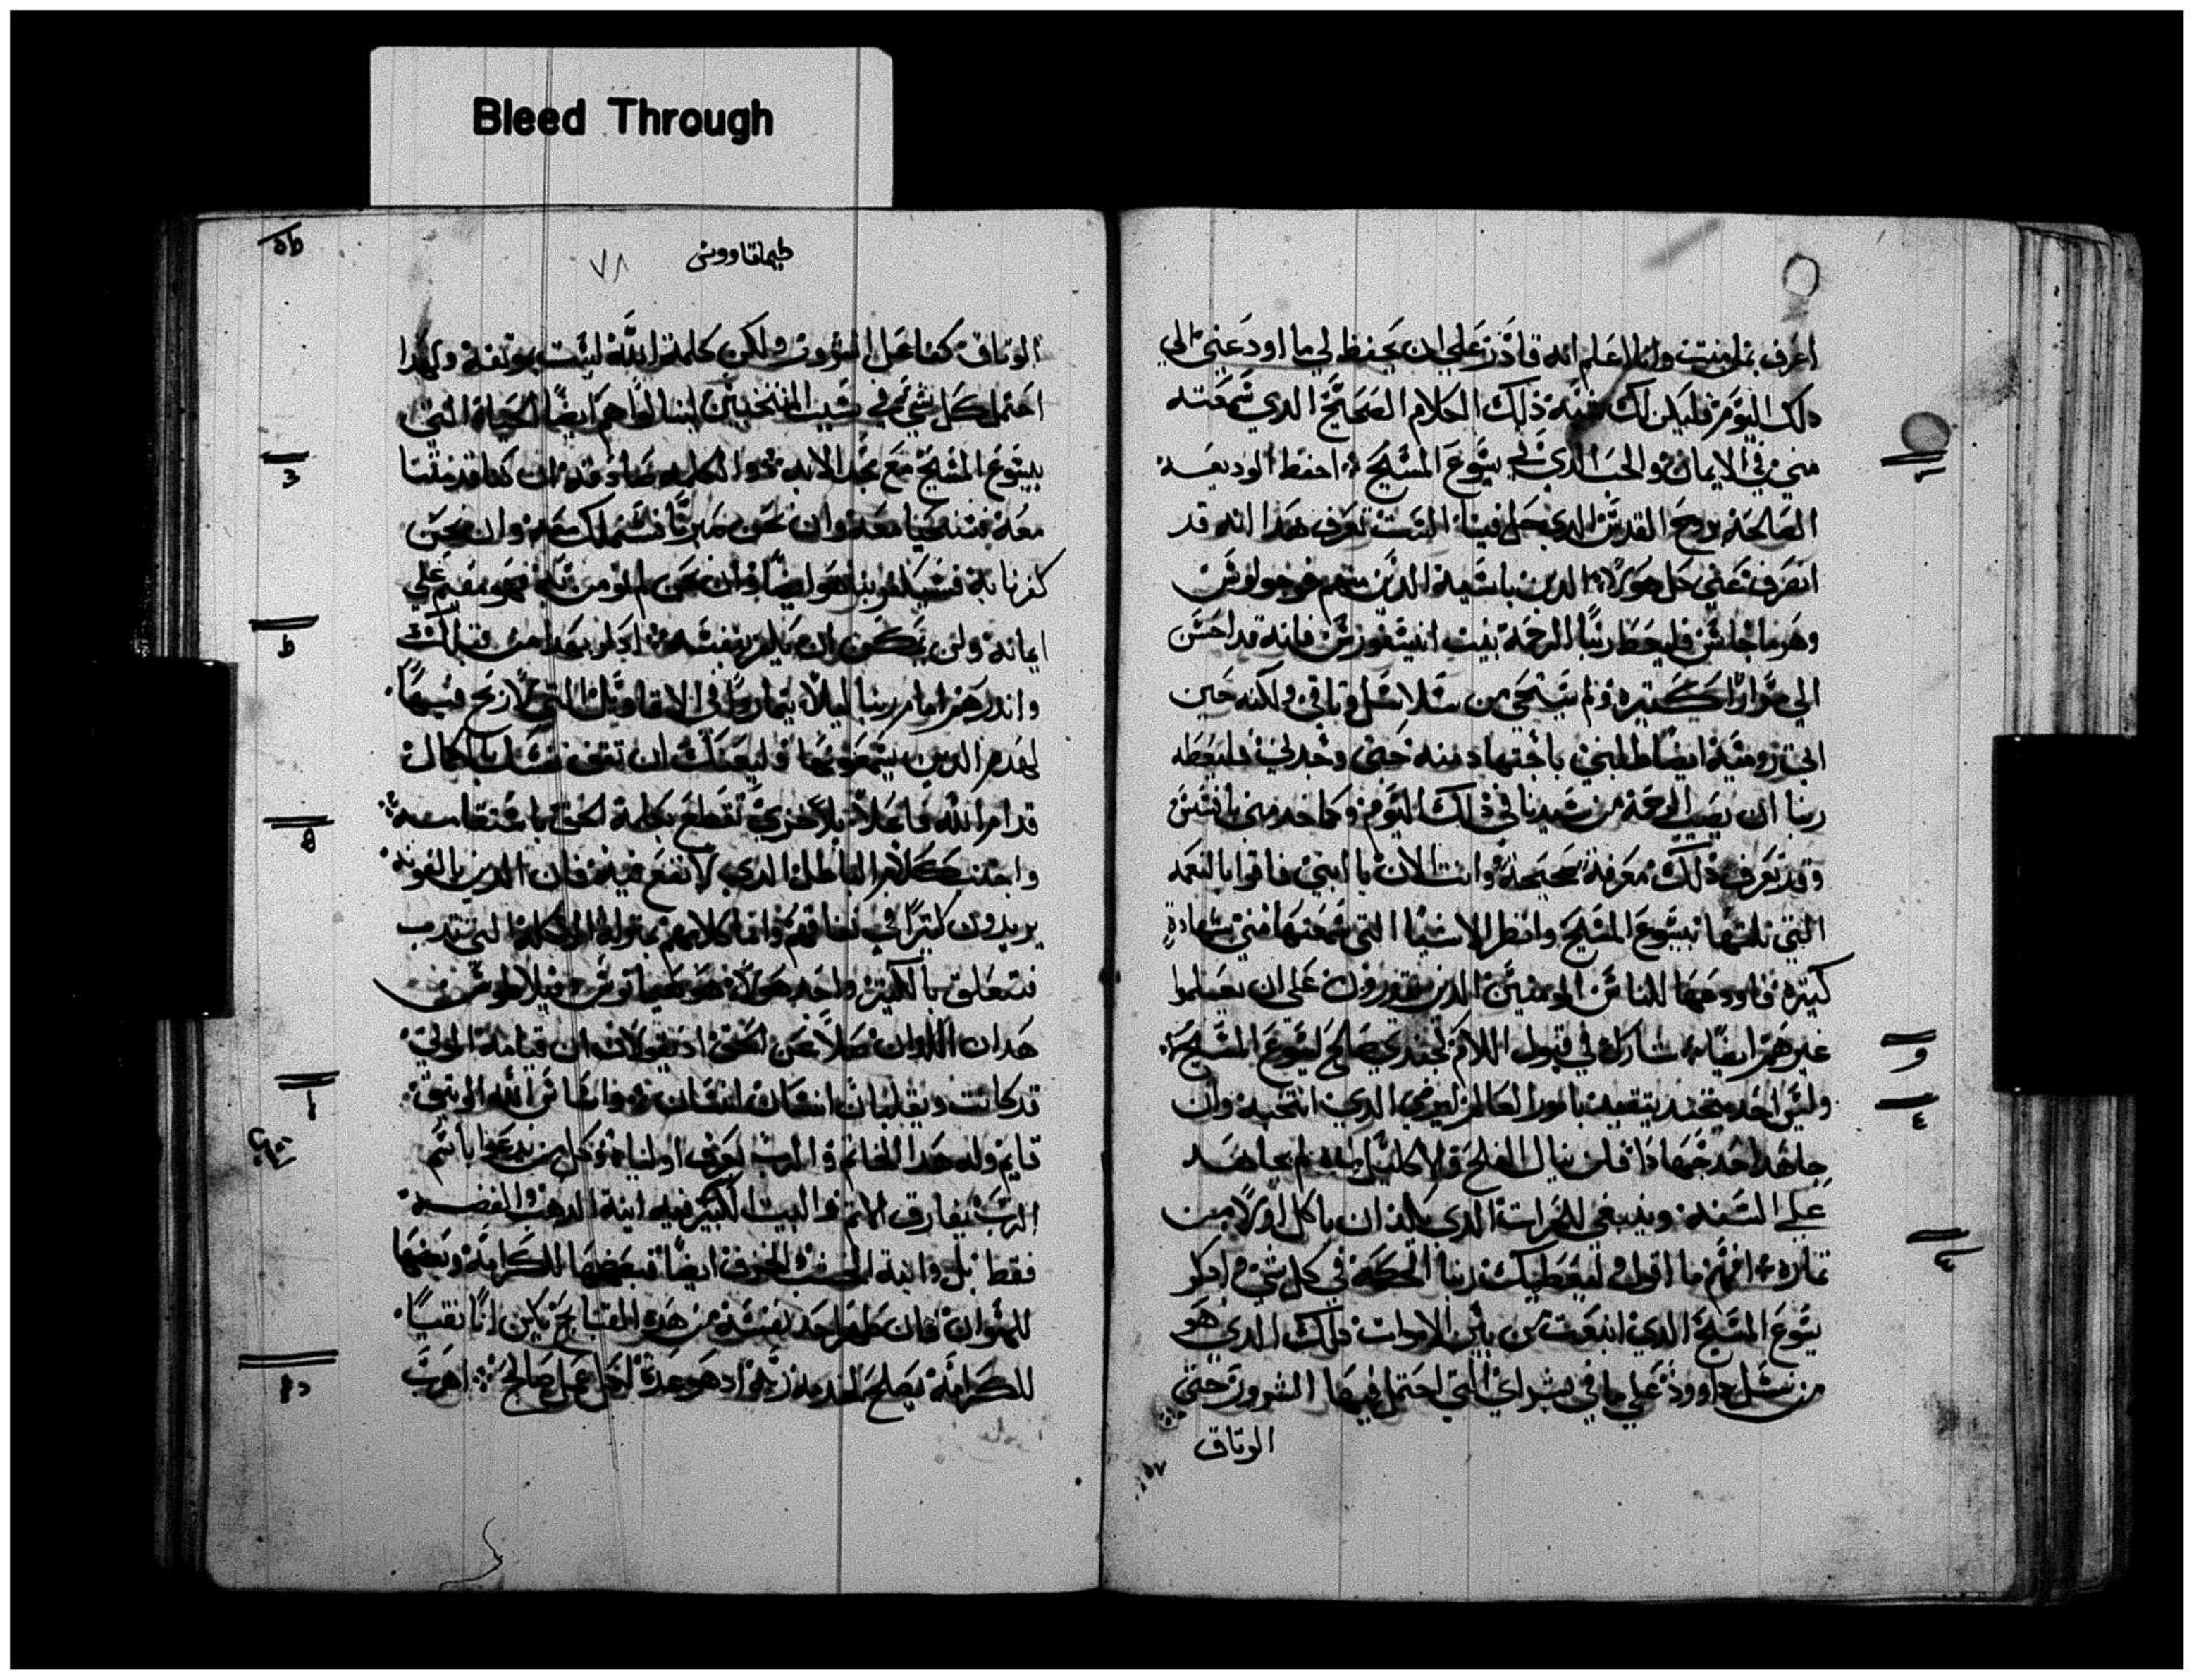 Bleed Through
اعرف بمن امنت وانا اعلم انه قادر علي ان يحفظ لي ما اودعني الي
ذلك اليوم فليكن لك شبه ذلك الكلام الصحيح الدي سمعته
مني في الايمان والحب الدي في يسوع المسيح احفظ الوديعه
الصالحة بروح القدس الدي حل فينا الست تعرف هدا انه قد
انصرف عني كل هولاء الدين باسية الدين منهم فوجولوس
وهرماجانس فليعط ربنا الرحمة بيت انيسفورس فانه قد احسن
الي مرارا كتيره ولم يستحي من سلاسل وتاقي ولكنه حين
اتي رومية ايضا طلبني باجتهاد منه حتي وجدني فليعطه
ربنا ان يصيب الرحمة من سيدنا في ذلك اليوم وكما خدمني بافسس
وقد تعرف ذلك معرفة صحيحة وانت الان يا ابني فاقوا بالنعمه
التي نلتها بيسوع المسيح وانظر الاشيا التي سمعتها مني بشهادة
كتيره فاودعها للناس المومنين الدين يقدرون علي ان يعلموا
غيرهم ايضا شارك في قبول الالام كجندي صالح ليسوع المسيح
وليس احد يتجند يتقيد بامور العالم ليرضي الدي انتخبه وان
جاهد احد جهادا فلن ينال الفلح والاكليل ان لم يجاهد
علي السنه وينبغي للحرات الدي يكد ان ياكل اولا من
تماره افهم ما اقول ليعطيك ربنا الحكمة في كل شي ادكر
يسوع المسيح الدي انبعت من بين الاموات دلك الدي هو
من نسل داوود علي ما في بشراي التي احتمل فيها الشرور حتي
الوتاق
طيماتاووس
٧٨
الوتاق كفاعل الشرور ولكن كلمة الله ليست بوتقة ولهدا
احتمل كل شي في سبب المنتخبين لينالوا هم ايضا الحياة التي
بيسوع المسيح مع مجد الابد والكلمه صادقة ان كنا قد متنا
معه فسنحيا معه وان نحن صبرنا فسنملك معه وان نحن
كفرنا به فسيكفر بنا هو ايضا وان نحن لم نومن به فهو مقيم علي
ايمانه ولن يمكن ان يكفر بنفسه ادكر بهدا من قبلك
واندرهم امام ربنا ليلا يتماروا في الاقاويل التي لا ربح فيها
لهدم الدين يسمعونها وليهمك ان تقف نفسك بالكمال
قدام الله فاعلا بلا خزي تقطع بكلمة الحق باستقامة
واجتنب كلام الباطل الدي لا نفع فيه فان الدين يالفونه
يزيدون كتيرا في نفاقهم وانما كلامهم بمنزلة الاكلة التي تتدب
فتعلق بالكتير واحد هولاء هو هيمانوس وفيلاطوس
هدان اللدان ضلا عن الحق اد يقولان ان قيامة الموتي
قد كانت ويقلبان انسان انسان واساس الله الوتيق
قايم وله هدا الخاتم والرب يعرف اولياه وكل من يدعوا باسم
الرب يفارق الاتم والبيت الكبير فيه انية الدهب والفضة
فقط بل وانية الخشب والخزف ايضا فبعضها للكرامة وبعضها
للهوان فان طهر احد نفسه من هده القبايح يكن انا نقيا
للكرامة يصلح لخدمة ربه اد هو عدة لكل عمل صالح اهرب